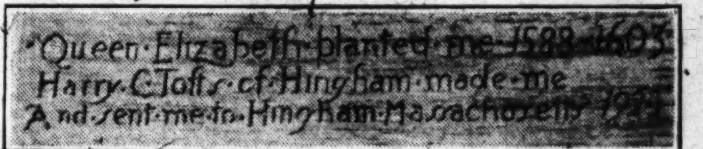 "Queen·Elizabeth·planted·me·1588·1603
Harry·C·Tofts·of·Hingham·made·me
And·sent·me·to·Hingham·Massachusetts